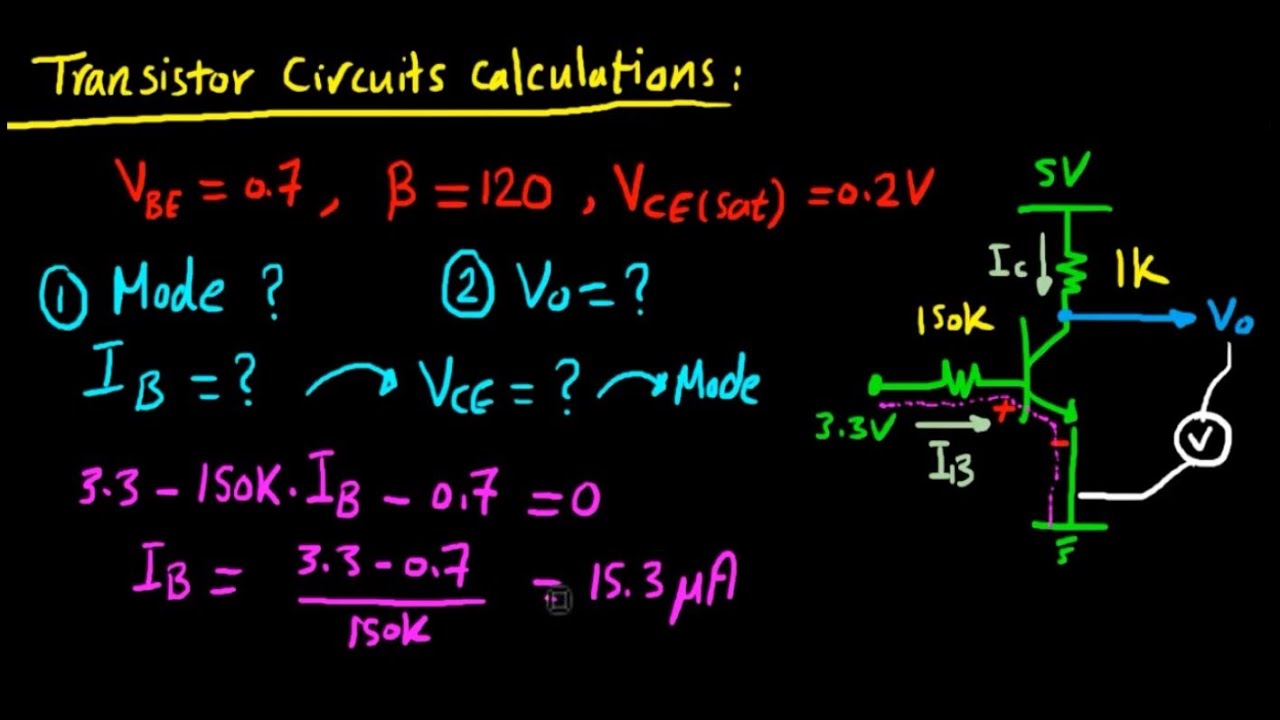 Transistor Circuits Calculations:
VBE = 0.7, β = 120, VCE(sat) = 0.2V
① Mode ? ② Vo = ?
IB = ? → VCE = ? → Mode
3.3 - 150K.IB - 0.7 = 0
IB = 3.3 - 0.7 / 150K = 15.3 μA
5V
Ic
1K
Vo
150K
3.3V
+
-
IB
V